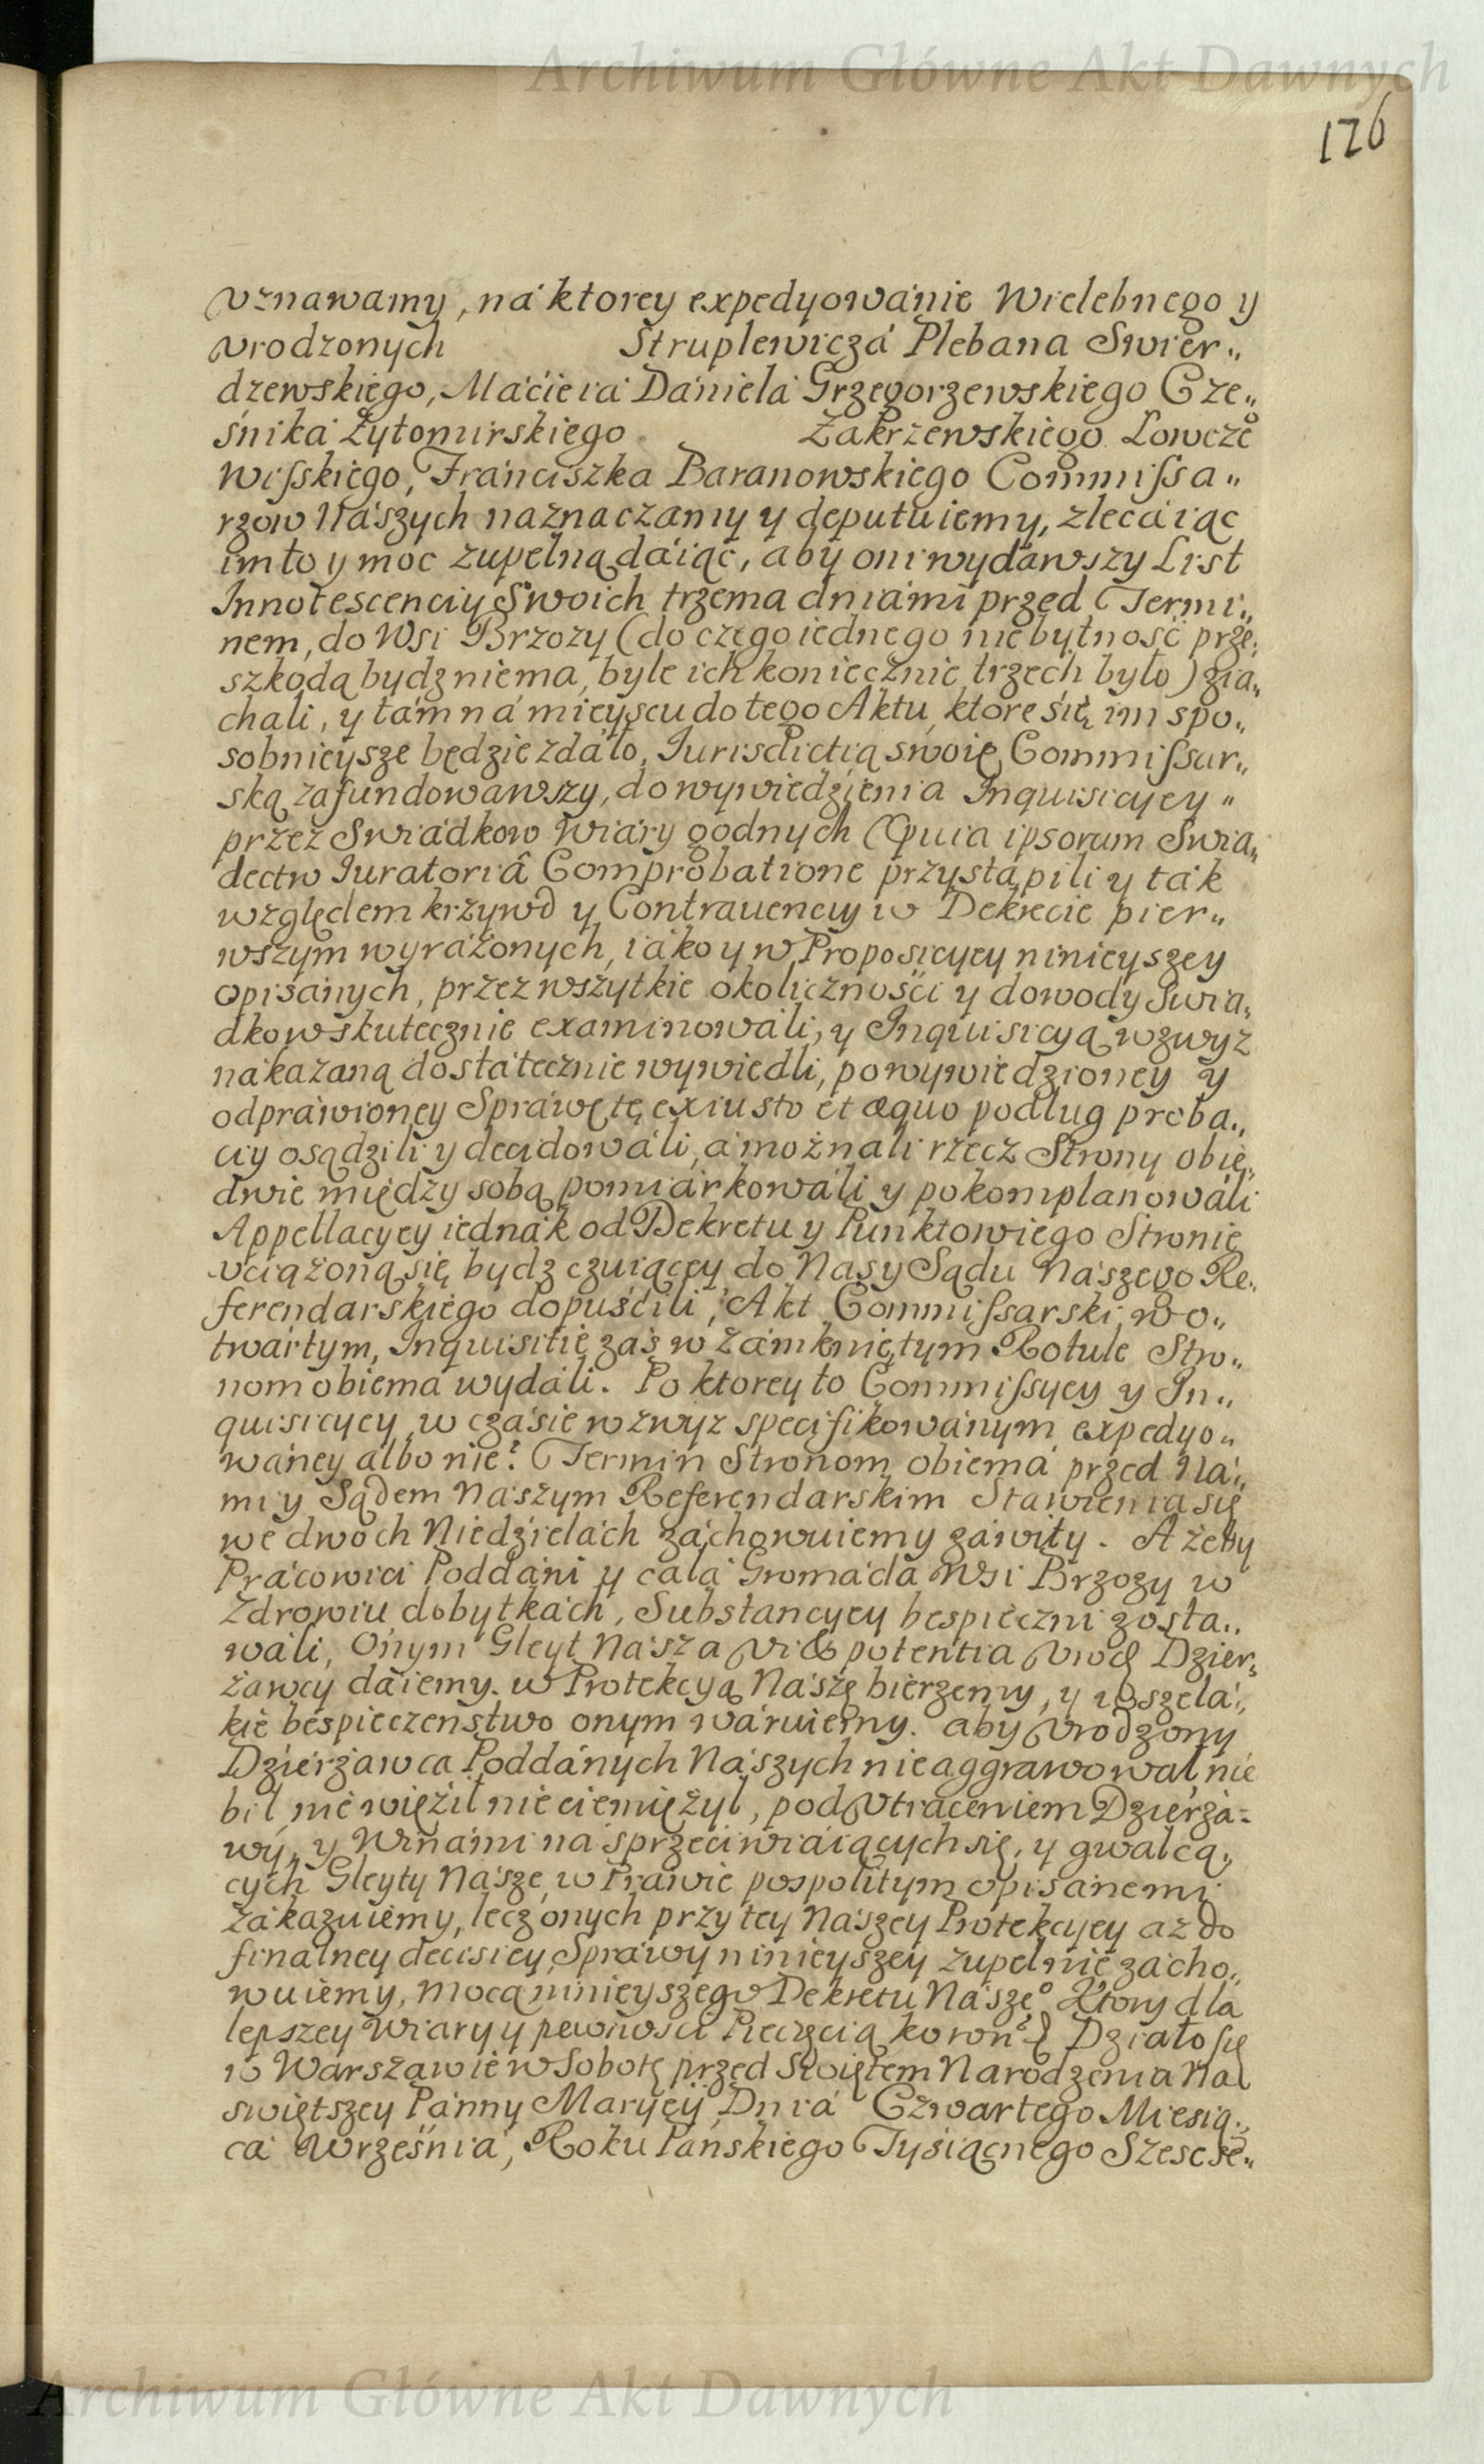 Archiwum Główne Akt Dawnych
126
vznawamy, ná ktorey expedyowánie Wielebnego y
vrodzonych Struplewiczá Plebana Swier„
dzewskiego, Máćieiá Dániela Grzegorzewskiego Cze„
śniká Zytomirskiego Zakrzewskiego Lowcze°
Wisskiego, Fránciszka Baranowskiego Commissa„
rzow Nászych náznaczamy y deputuiemy, zlecáiąc
im to y moc zupełną dáiąc, aby oni wydawszy List
Innotescenciy Swoich trzema dniámi przed Termi„
nem, do Wsi Brzozy (do czego iednego niebytność prze„
szkodą bydz niema, byle ich koniecznie trzech było) zia„
chali, y tám ná mieyscu do tego Aktu, ktore się im spo„
sobnieysze będzie zdáło, Jurisdictią swoię Commissar„
ską zafundowawszy, do wywiedzienia Inquisicyey„
przez Swiadkow Wiáry godnych (Quia ipsorum Swia„
dectw Iuratoriâ Comprobatione przystąpili y ták
względem krzywd y Contravenciy w Dekrecie pier„
wszym wyráżonych, iáko y w Proposicyey ninieyszey
opisánych, przez wszytkie okoliczności y dowody Swia„
dkow skutecznie examinowáli, y Inquisicyą wzwyz
nákazaną dostátecznie wywiedli, po wywiedzioney y
odpráwioney Spráwę tę ex iusto et æquo podług proba„
ciy osądzili y decidowáli, á możnali rzecz Strony obie„
dwie między sobą pomiárkowáli y pokomplanowáli
Appellacyey iednák od Dekretu y Punktow iego Stronie
vciążoną się bydz czuiącey do Nas y Sądu Nászego Re„
ferendarskiego dopuśćili, Akt Commissarski w o„
twártym, Inquisitie záś w zámkniętym Rotule Stro„
nom obiema wydáli. Po ktorey to Commissyey y In„
quisicyey w czásie wzwyz specifikowánym expedyo„
wáney albo nie? Termin Stronom obiema przed Ná„
mi y Sądem Nászym Referendarskim Stawienia się
we dwoch Niedzielách záchowuiemy záwity. A żeby
Prácowici Poddáni y cáła Gromáda Wsi Brzozy w
Zdrowiu dobytkách, Substancyey bespieczni zosta„
wáli, Onym Gleyt Nász a vi & potentia Vrod Dzier„
żawcy dáiemy. w Protekcyą Nászę bierzemy, y wszelá„
kie bespieczenstwo onym wáruiemy. aby Vrodzony
Dzierżawca Poddánych Nászych nie aggrawował nie
bił, nie więźił nie ciemiężył, pod Vtraceniem Dzierża=
wy, y Winámi ná sprzeciwiáiących się, y gwałcą„
cych Gleyty Násze, w Práwie pospolitym opisánemi
Zákazuiemy, lecz onych przy tey Nászey Protekcyey az do
finálney decisiey Spráwy ninieyszey zupełnie zácho„
wuiemy, mocą ninieyszego Dekretu Násze° Ktory dla
lepszey Wiary y pewności Pieczęcią koron Działo się
w Warszáwie w Sobotę przed Swiętem Narodzenia Na
swiętszey Pánny Maryey Dniá Czwartego Miesią„
cá Wrześniá, Roku Pánskiego Tysiącnego Szescse„
Archiwum Główne Akt Dawnych